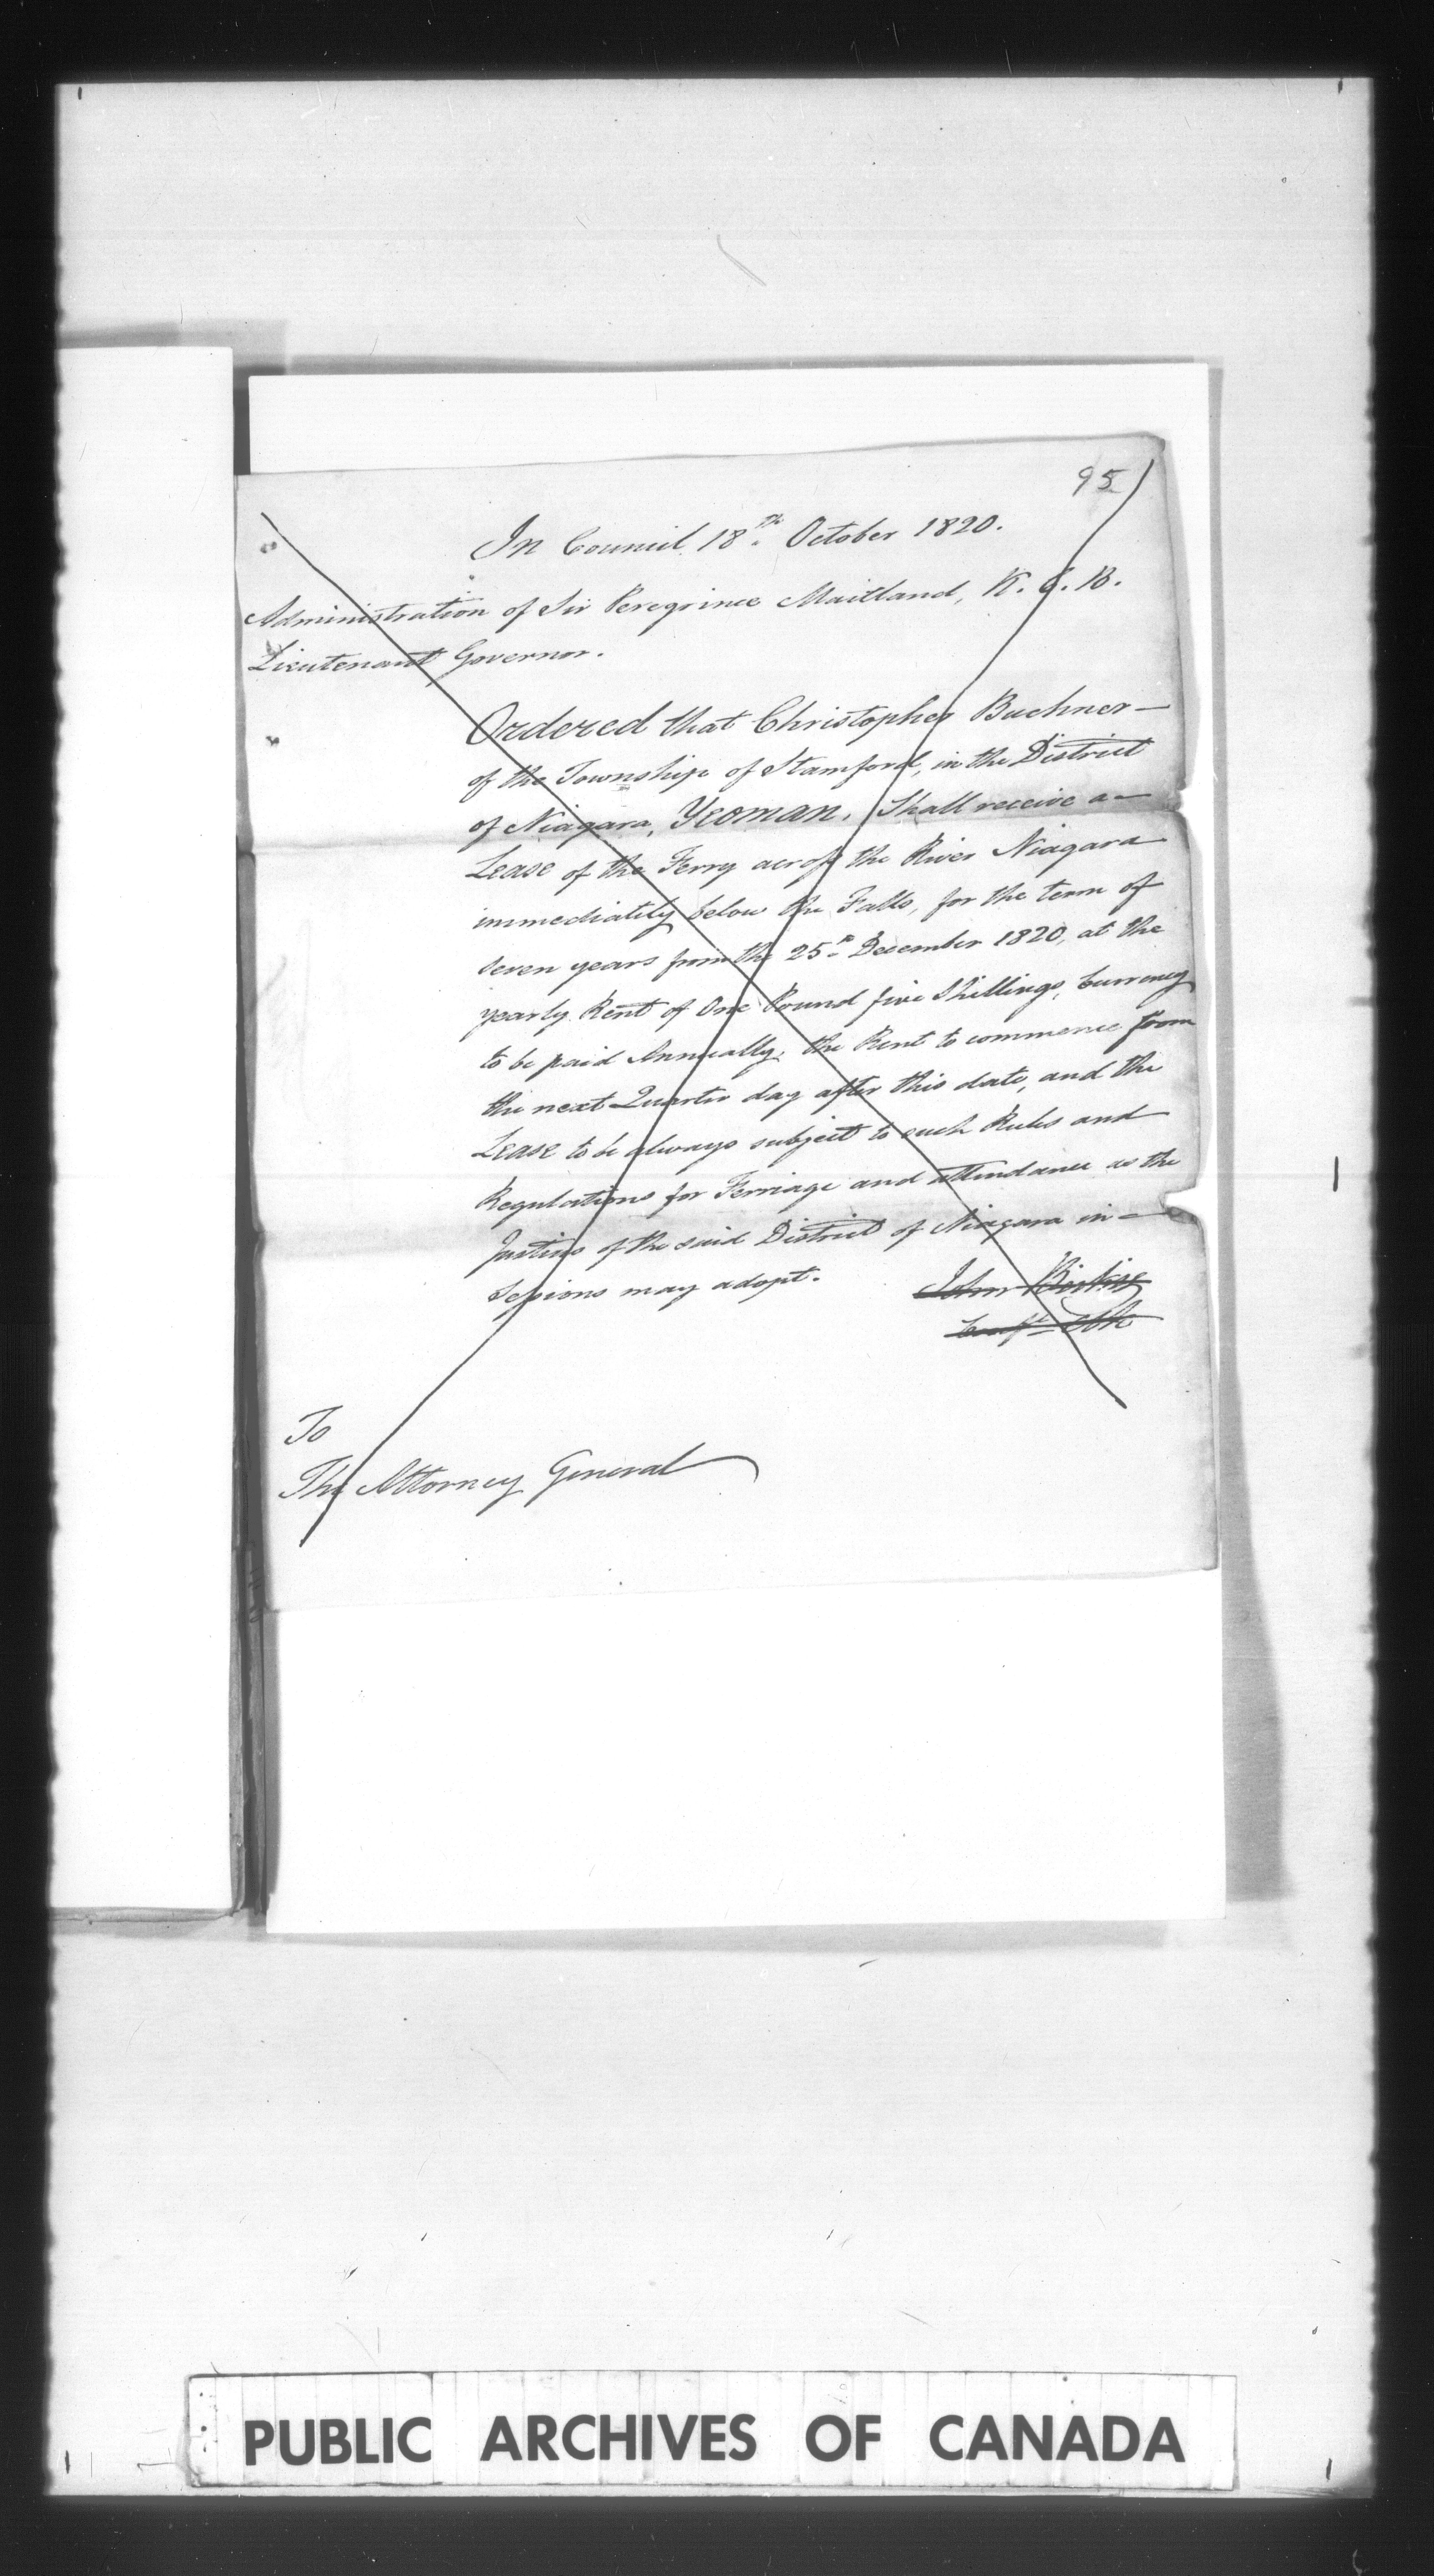 95
In Council 18th October 1820.
Administration of Sir Peregrine Maitland, K.C.B.
Lieutenant Governor.
Ordered that Christopher Buchner—
of the Township of Stamford, in the District
of Niagara, Yeoman, Shall receive a—
Lease of the Ferry across the River Niagara
immediately below the Falls, for the term of
seven years from the 25th December 1820, at the
yearly Rent of One Pound five Shillings, Currency
to be paid Annually, the Rent to commence from
the next Quarter day after this date, and the
Lease to be always subject to such Rules and
Regulations for Ferriage and attendance as the
Justices of the said District of Niagara in—
Sessions may adopt.
John Beikie
To
The Attorney General
PUBLIC ARCHIVES OF CANADA